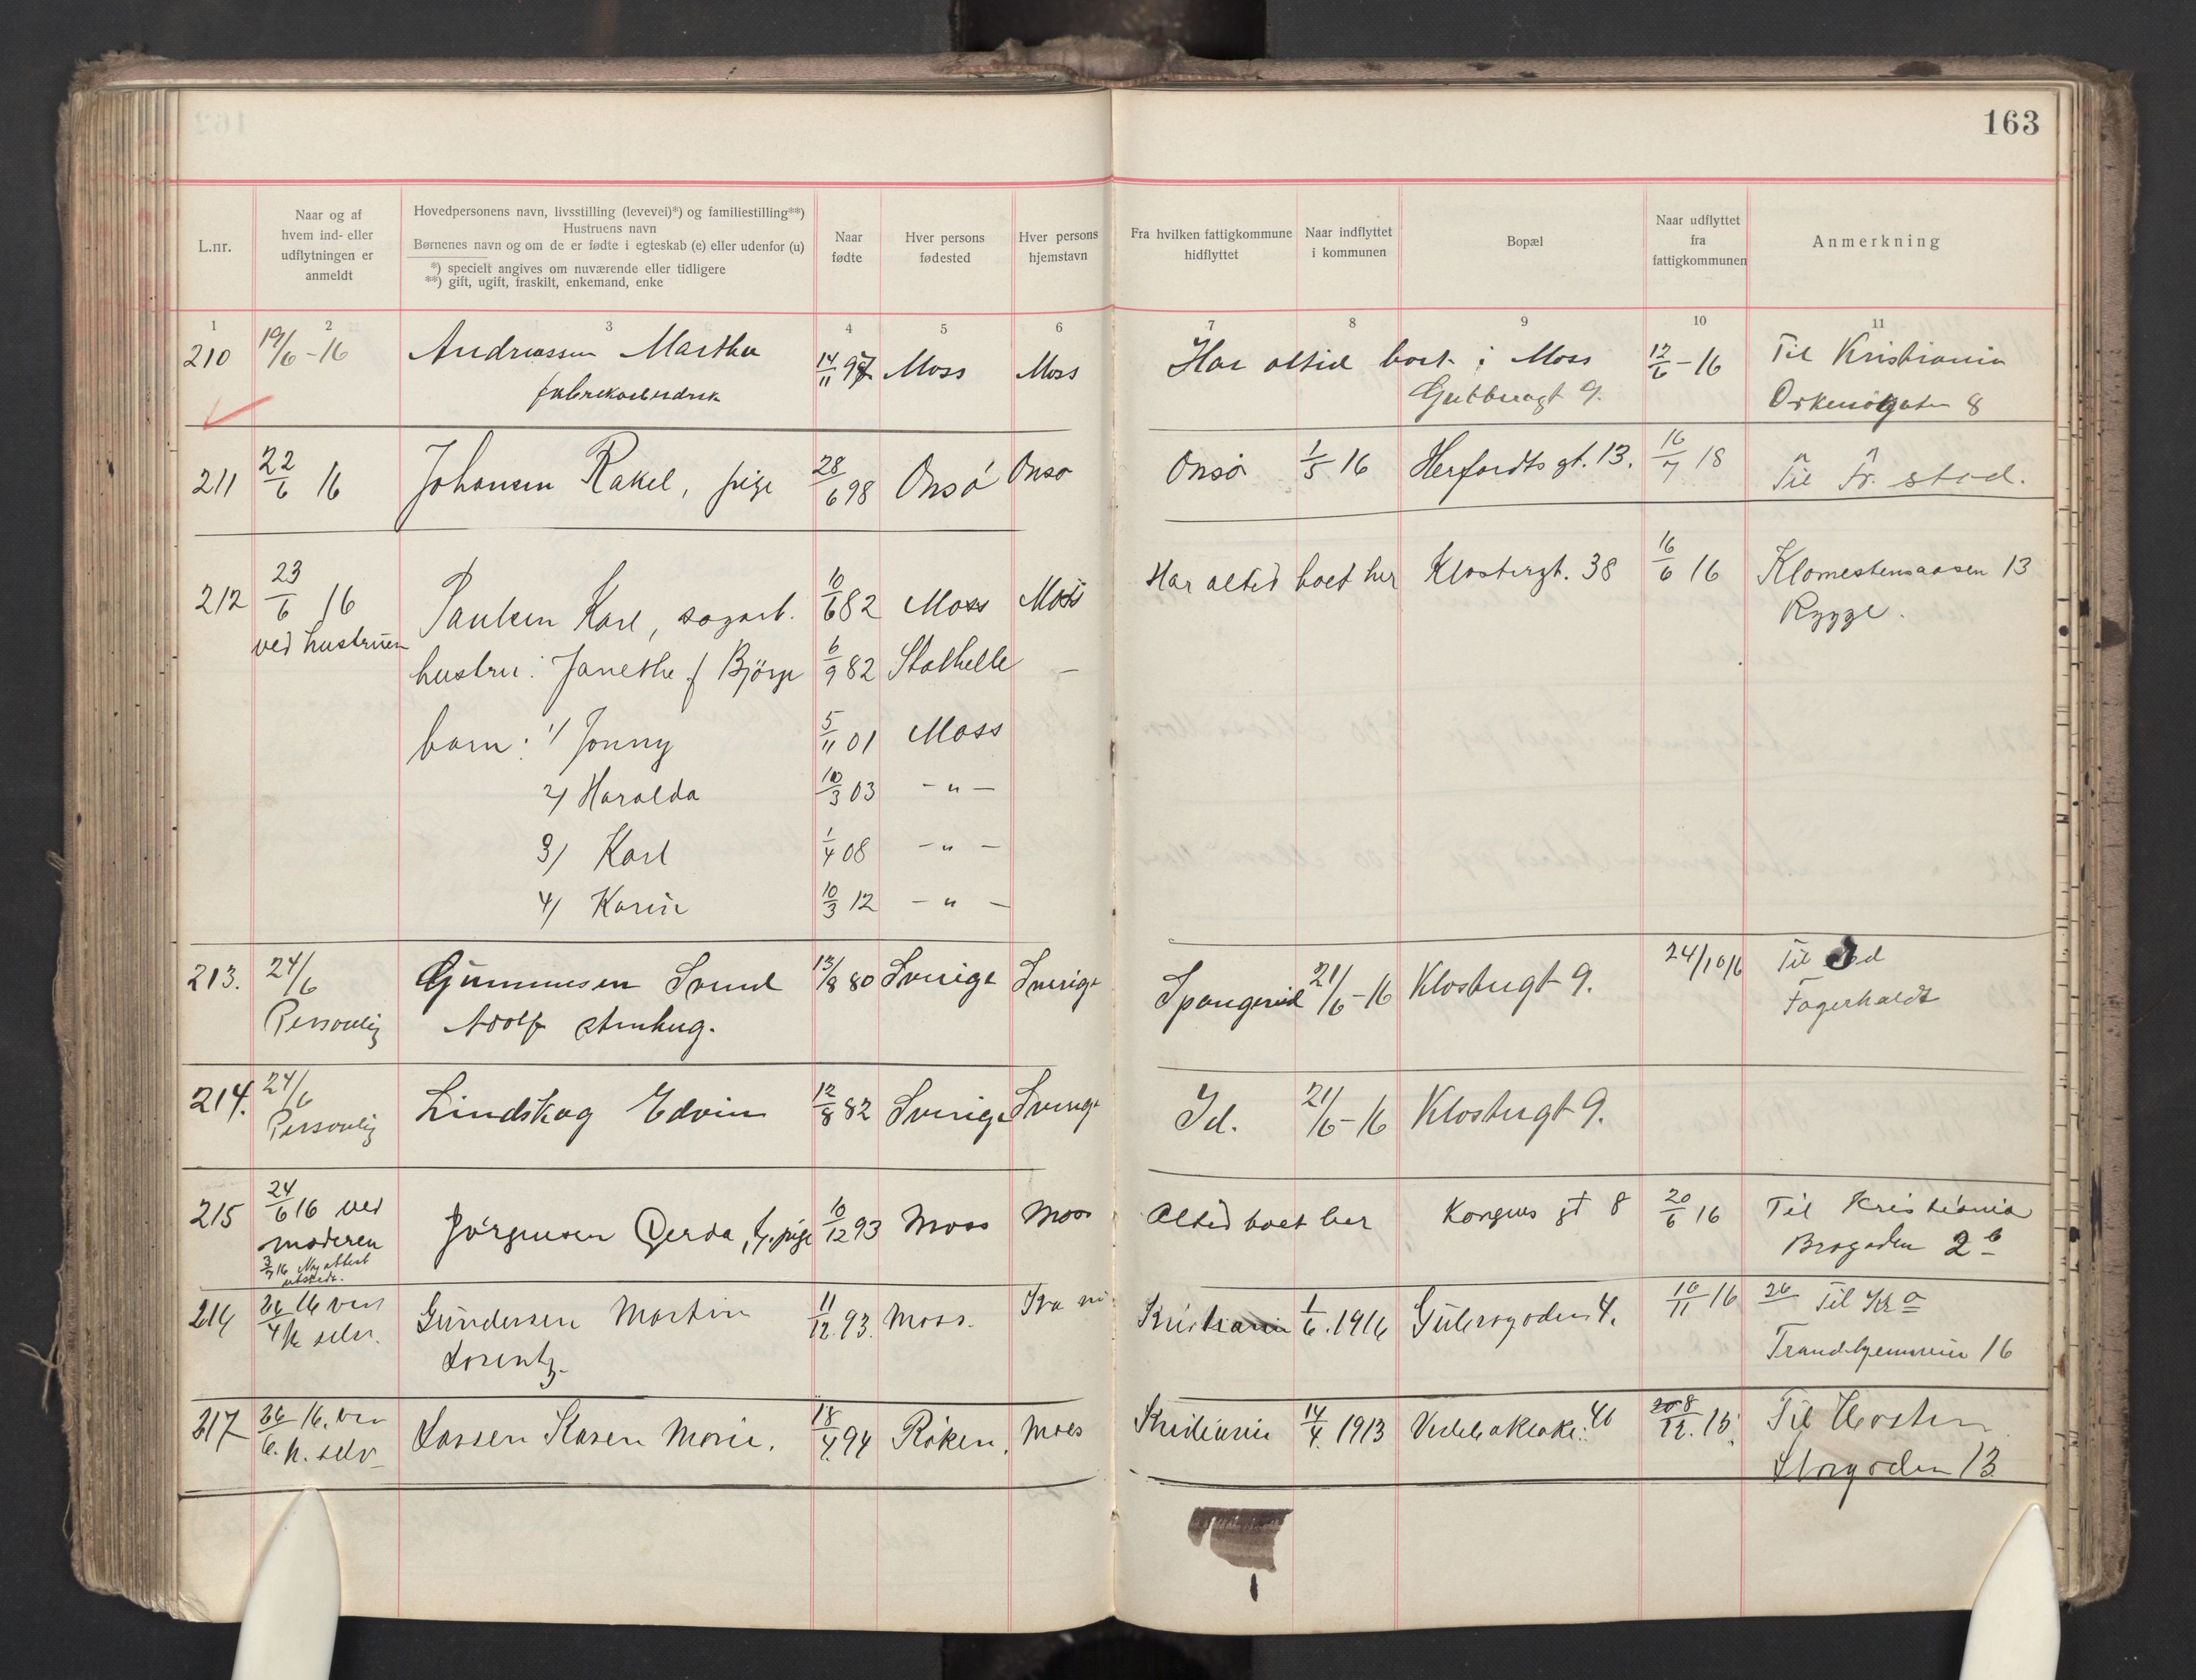 163
L.nr.
Naar og af
hvem ind- eller
udflytningen er
anmeldt
Hovedpersonens navn, livsstilling (levevei)*) og familiestilling**)
Hustruens navn
Børnenes navn og om de er fødte i egteskab (e) eller udenfor (u)
*) specielt angives om nuværende eller tidligere
**) gift, ugift, fraskilt, enkemand, enke
Naar
fødte
Hver persons
fødested
Hver persons
hjemstavn
Fra hvilken fattigkommune
hidflyttet
Naar indflyttet
i kommunen
Bopæl
Naar udflyttet
fra
fattigkommunen
Anmerkning
1 2 3 4 5 6 7 8 9 10 11
210 19/6-16 Andreassen Martha 14/11 97 Moss Moss Har altid boet i Moss 12/6-16 Til Kristiania
8
211 22/6 16 Johansen Rakel, pige 28/6 98 Onsö Onsö Onsö 1/5 16 Herfordts gt. 13. 16/7 18 Til Fr. stad.
212 23/6 16 Paulsen Karl, sagarb. 10/6 82 Moss Moss Har altid boet her Klostergt. 38 16/6 16 Klomestensaasen 13
ved hustruen Rygge.
hustru: Janethe f Björge 6/9 82 Stathelle —
barn: 1/ Jonny 5/11 01 Moss
2/ Haralda 10/3 03 - " -
3/ Karl 1/4 08 - " -
4/ Karin 10/3 12 - " -
213. 24/6 Gummesen Svend 13/8 80 Sverige Sverige 21/6-16 Klostergt 9. Til Id
Personlig Adolf stenhug. Fagerholdt
214. 24/6 Lindskog Edvin 12/8 82 Sverige Sverige Id. 21/6-16 Klostergt 9.
Personlig
215 24/6 16 ved Jörgensen Gerda, f. pige 10/12 93 Moss Moss Altid boet her Kongens gt 8 20/6 16 Til Kristiania
moderen Brogaden 2b
3/7 16 Ny attest
utstedt.
216 Gundersen Martin 11/12. 93. Moss. Kristiania 1/6. 1916 4. 10/11-16 Til Kra
Lorentz. 16
217 Lassen Karen Marie. 18/4 94 Röken. Moss Kristiania 14/4. 1913 Til
Storgaden 13